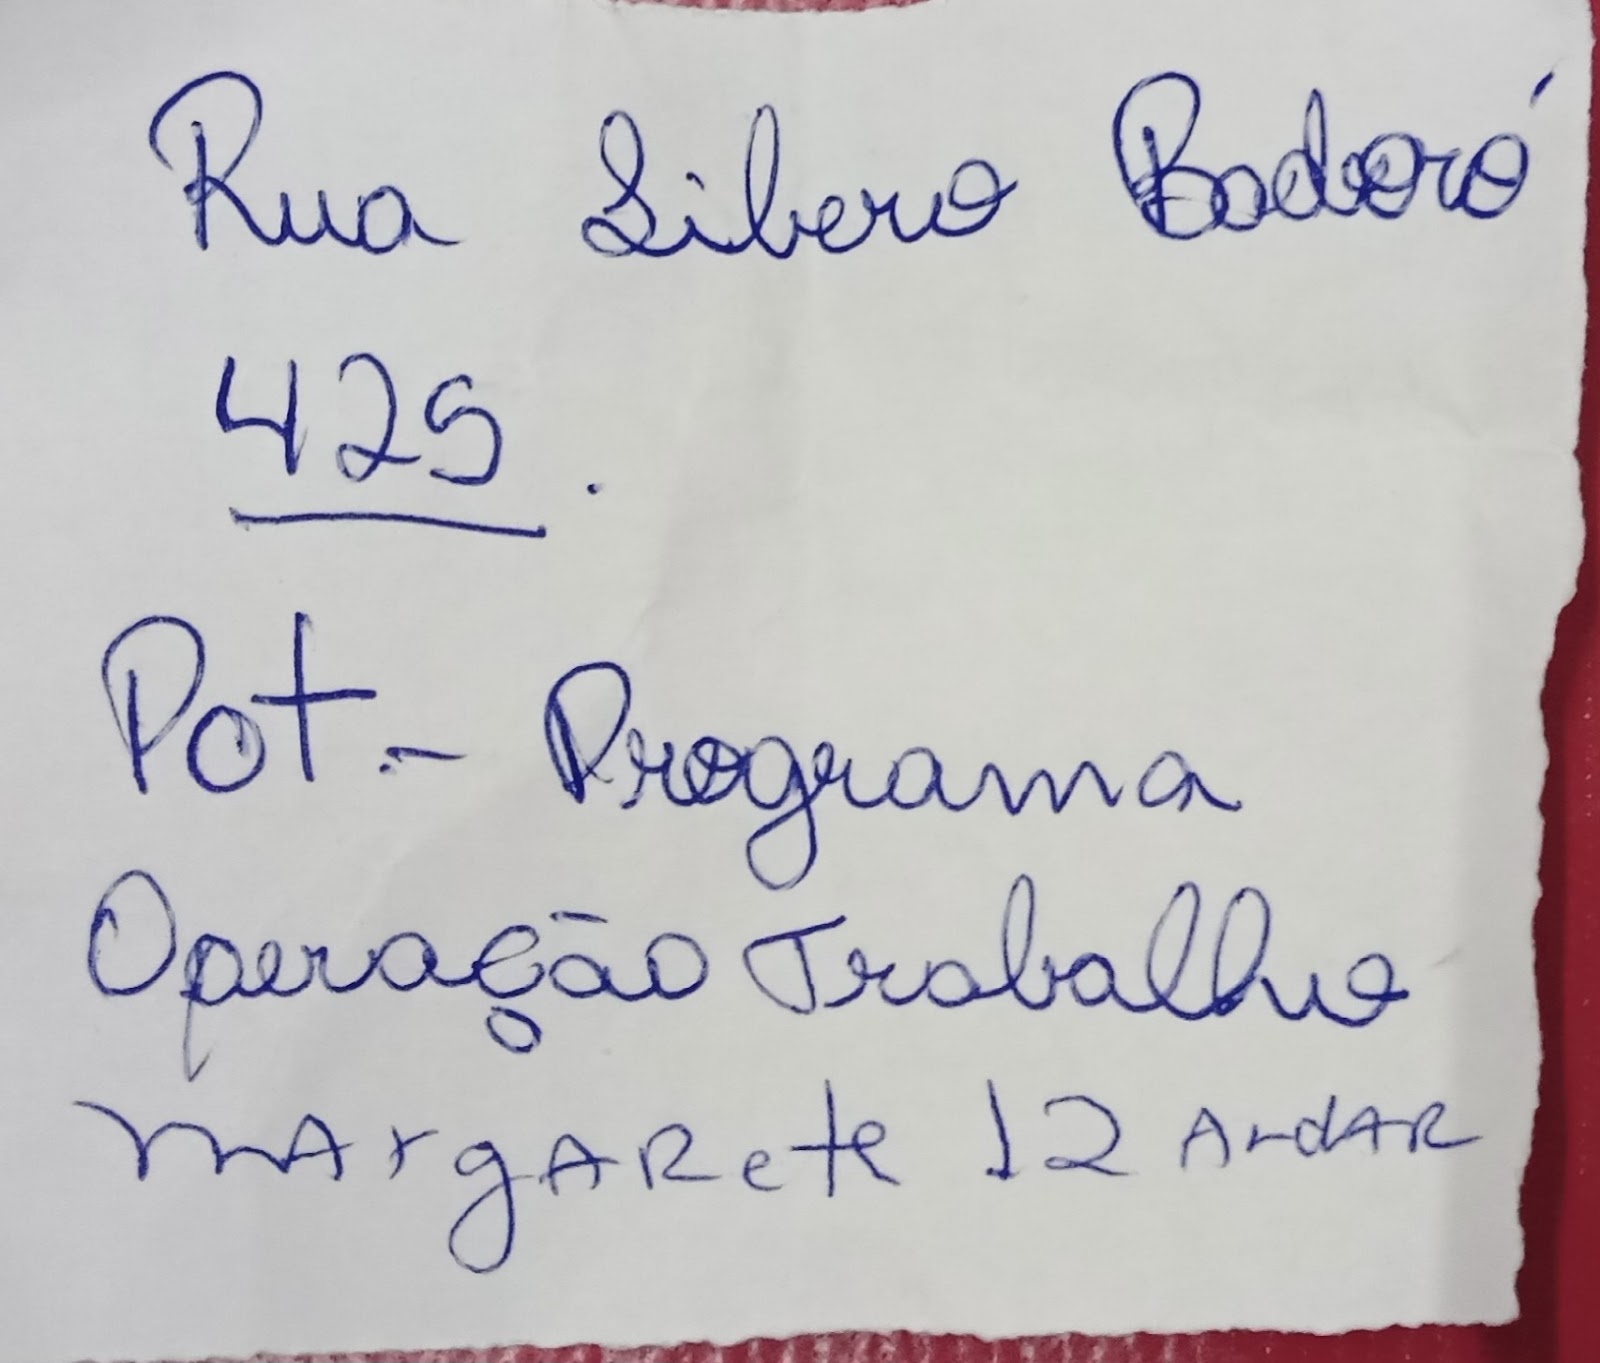 Rua Libero Badoró
425.
Pot.- Programa
Operação Trabalho
MArgARete 12 AndAR